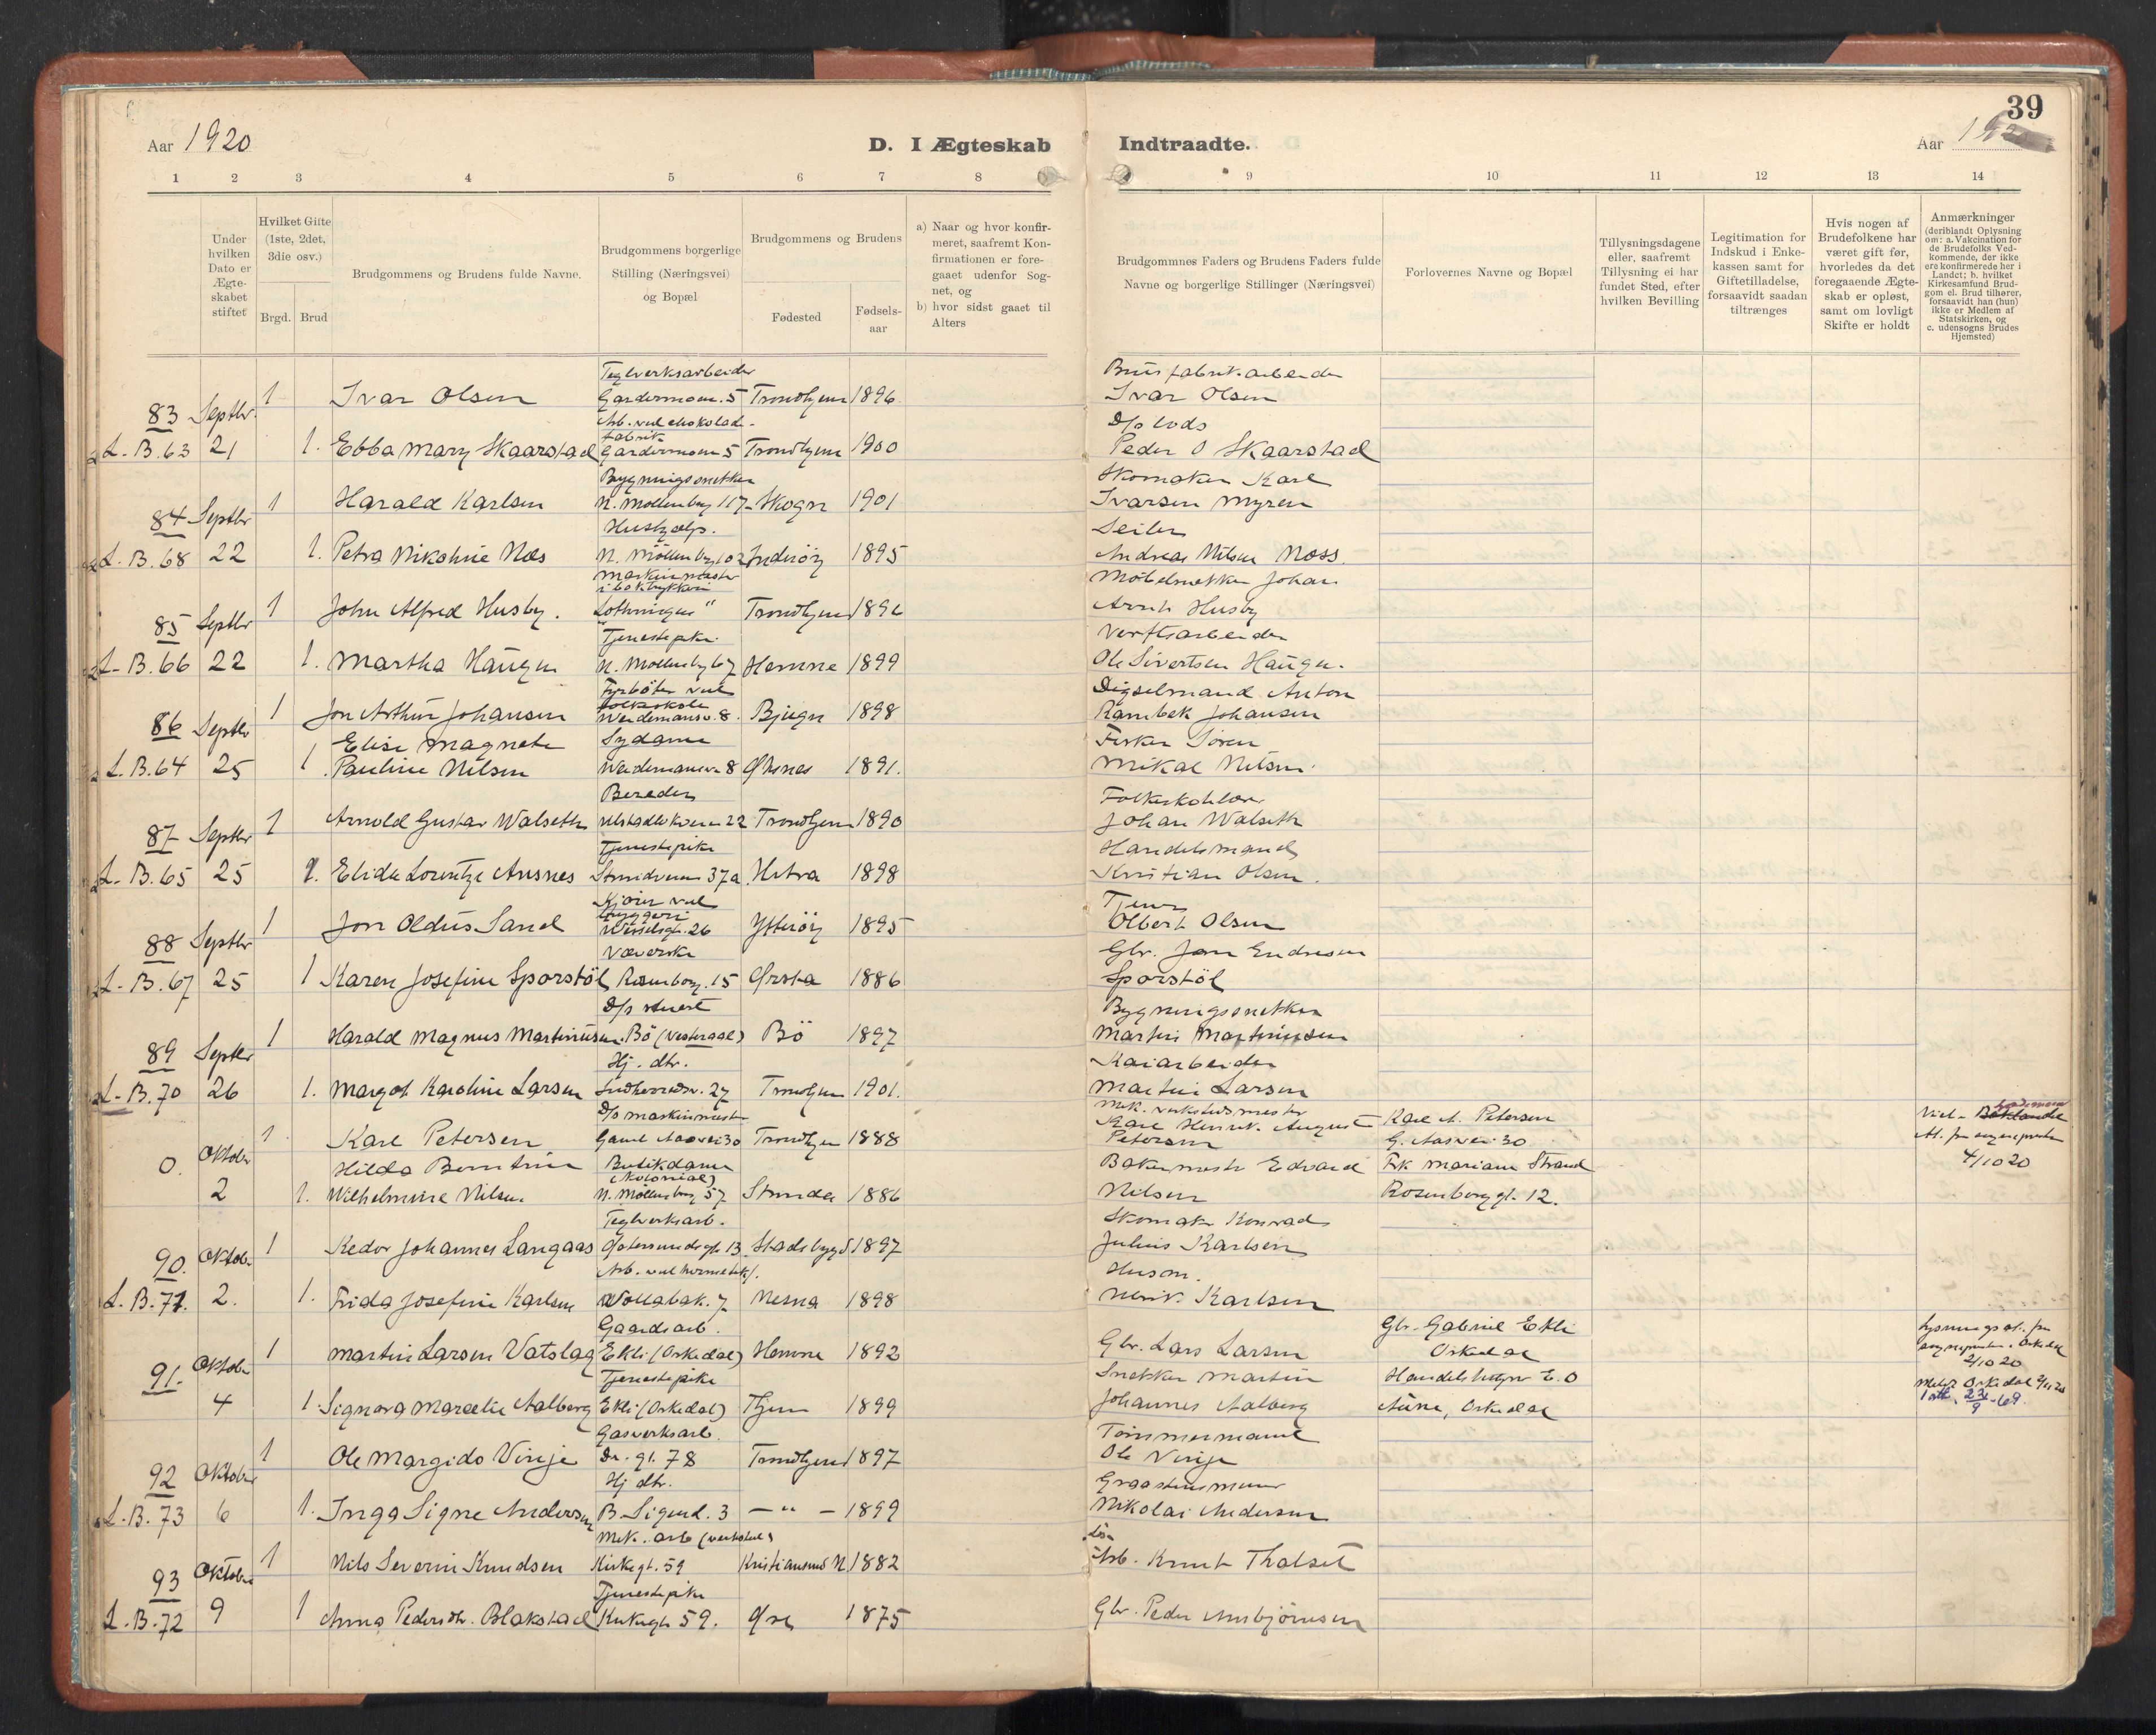 39
Aar 1920
D. I Ægteskab Indtraadte.
Aar 192
1 2 3 4 5 6 7 8 9 10 11 12 13 14
Under hvilken Dato er Ægte-skabet stiftet
Hvilket Gifte (1ste, 2det, 3die osv.)
Brgd. Brud
Brudgommens og Brudens fulde Navne.
Brudgommens borgerlige Stilling (Næringsvei) og Bopæl
Brudgommens og Brudens
Fødested
Fødsels-aar
a) Naar og hvor konfir-meret, saafremt Kon-firmationen er fore-gaaet udenfor Sog-net, og
b) hvor sidst gaaet til Alters
Brudgommnes Faders og Brudens Faders fulde Navne og borgerlige Stillinger (Næringsvei)
Forlovernes Navne og Bopæl
Tillysningsdagene eller, saafremt Tillysning ei har fundet Sted, efter hvilken Bevilling
Legitimation for Indskud i Enke-kassen samt for Giftetilladelse, forsaavidt saadan tiltrænges
Hvis nogen af Brudefolkene har været gift før, hvorledes da det foregaaende Ægte-skab er opløst, samt om lovligt Skifte er holdt
Anmærkninger (deriblandt Oplysning om: a. Vakcination for de Brudefolks Ved-kommende, der ikke ere konfirmerede her i Landet; b. hvilket Kirkesamfund Brud-gom el. Brud tilhører, forsaavidt han (hun) ikke er Medlem af Statskirken, og c. udensogns Brudes Hjemsted)
Teglverksarbeider Brusfabrik.arbeider
83 Septbr. 1 Ivar Olsen Gardermoen. 5 Trondhjem 1896 Ivar Olsen
Arb. ved chokolade- D/s lods
fabrik
L.B.63 21 1. Ebba Mary Skaarstad Gardermoen 5 Trondhjem 1900 Peder O Skaarstad
Bygningssnekker Skomaker Karl
84 Septbr 1 Harald Karlsen N. Møllenberg 117 Skogn 1901 Ivarsen Myren
Hushjælp. Seiler
L.B.68 22 1. Petra Nikoline Næs N. Möllenbg 102 Inderöy 1895 Andreas Nilsen Næss.
Maskinmester Möbelsnekker Johan
i boktrykkeri
85 Septbr 1 John Alfred Husby. Lothringen " Trondhjem 189 Arnt Husby
Tjenestepike Verftsarbeider
L.B.66 22 1. Martha Haugen N. Möllenbg 67 Hemne 1899 Ole Sivertsen Haugen.
Fyrböter ved Anton
folkeskole
86 Septbr 1 Jon Arthur Johansen Weidemansv. 8. Bjugn 1898 Rambek Johansen
Elise Magnete Sydame Fisker Sören
L.B.64 25 1 Pauline Nilsen Weidemansv. 8 Øksnes 1891. Mikal Nilsen.
Bereder Folkeskolelærer
87 Septbr 1 Arnold Gustav Walseth Ulstadlökveien 22 Trondhjem 1890 Johan Walseth
Tjenestepike Handelsmand
L.B.65 25 1. Elida Lorentze Ansnes Strindveien 37a Hitra 1898 Kristian Olsen.
Kjører ved Tjener
bryggeri
88 Septbr 1 Jon Oldus Sand Wesselsgt. 26 Ytteröy 1895 Olbert Olsen
Væverske Gbr. Jon Endresen
L.B.67 25 1 Karen Josefine Sporstöl Rosenborg. 15 Ørsta 1886 Sporstöl
D/s stuert Bygningssnekker
89 Septbr 1 Harald Magnus Martinussen Bö (Vesteraal) Bö 1897 Martin Martinussen
Hj. dtr. Kaiarbeider
L.B.70 26 1. Margot Karoline Larsen Indherredsv. 27 Trondhjem 1901. Martin Larsen
D/s maskinmester Mek. verkstedsmester
0. Oktober 1 Karl Petersen Gamle Aasvei 30 Trondhjem 1888 Karl Henrik August Karl A. Petersen
Petersen G. Aasvei 30
Hilda Berntine Butikdame Bakermester Edvard Frk Mariane Strand
(kolonial)
2 1. Wilhelmine Nilsen N. Möllenberg 57 Strinda 1886 Nilsen Rosenborg gt. 12.
4/10 20
Teglverksarb. Skomaker Konrad
90. Oktob. 1 Kedor Johannes Langaas Østersundsgt. 13. Stadsbygd 1897 Julius Karlsen
Arb. ved hermetikf. Husm.
L.B.71. 2. 1. Frida Josefine Karlsen Wollabak. 7 Nesna 1898 Ulrik Karlsen
Gaardsarb. Gbr. Gabriel Ekli Lysningsat. fra
91. Oktober 1 Martin Larsen Vatslag Ekli (Orkedal) Hemne 1892 Gbr. Lars Larsen Orkedal sogneprest i Orkedal 2/10 20
Tjenestepike Snekker Martin Handelsbetjent E. O
4 1. Signora Marelie Aalberg Ekli (Orkedal) 1899 Johannes Aalberg Aune, Orkedal
Gasverksarb. Tömmermand
92 Oktober 1 Ole Margido Vinje Dr. gt. 78 Trondhjem 1897 Ole Vinje
Hj dtr. Graastensmurer
L.B.73 6 1. Inga Signe Andersen B. Sigurd. 3 — " — 1899 Nikolai Andersen
Mek. arb (verksted) Løs-
93 Oktober 1 Nils Severin Knudsen Kirkegt. 59 Kristiansund N. 1882 Arb. Knut Thalset
Tjenestepike
L.B.72 9 1 Anna Pedersdtr. Blakstad Kirkegt 59. Øre 1875 Gbr. Peder Ansbjørnsen